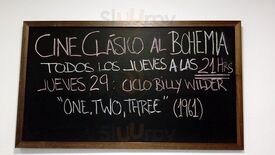 CINE CLÁSICO AL BOHEMIA
TODOS LOS JUEVES A LAS 21 HRS
JUEVES 29: CICLO BILLY WILDER
"ONE, TWO, THREE" (1961)